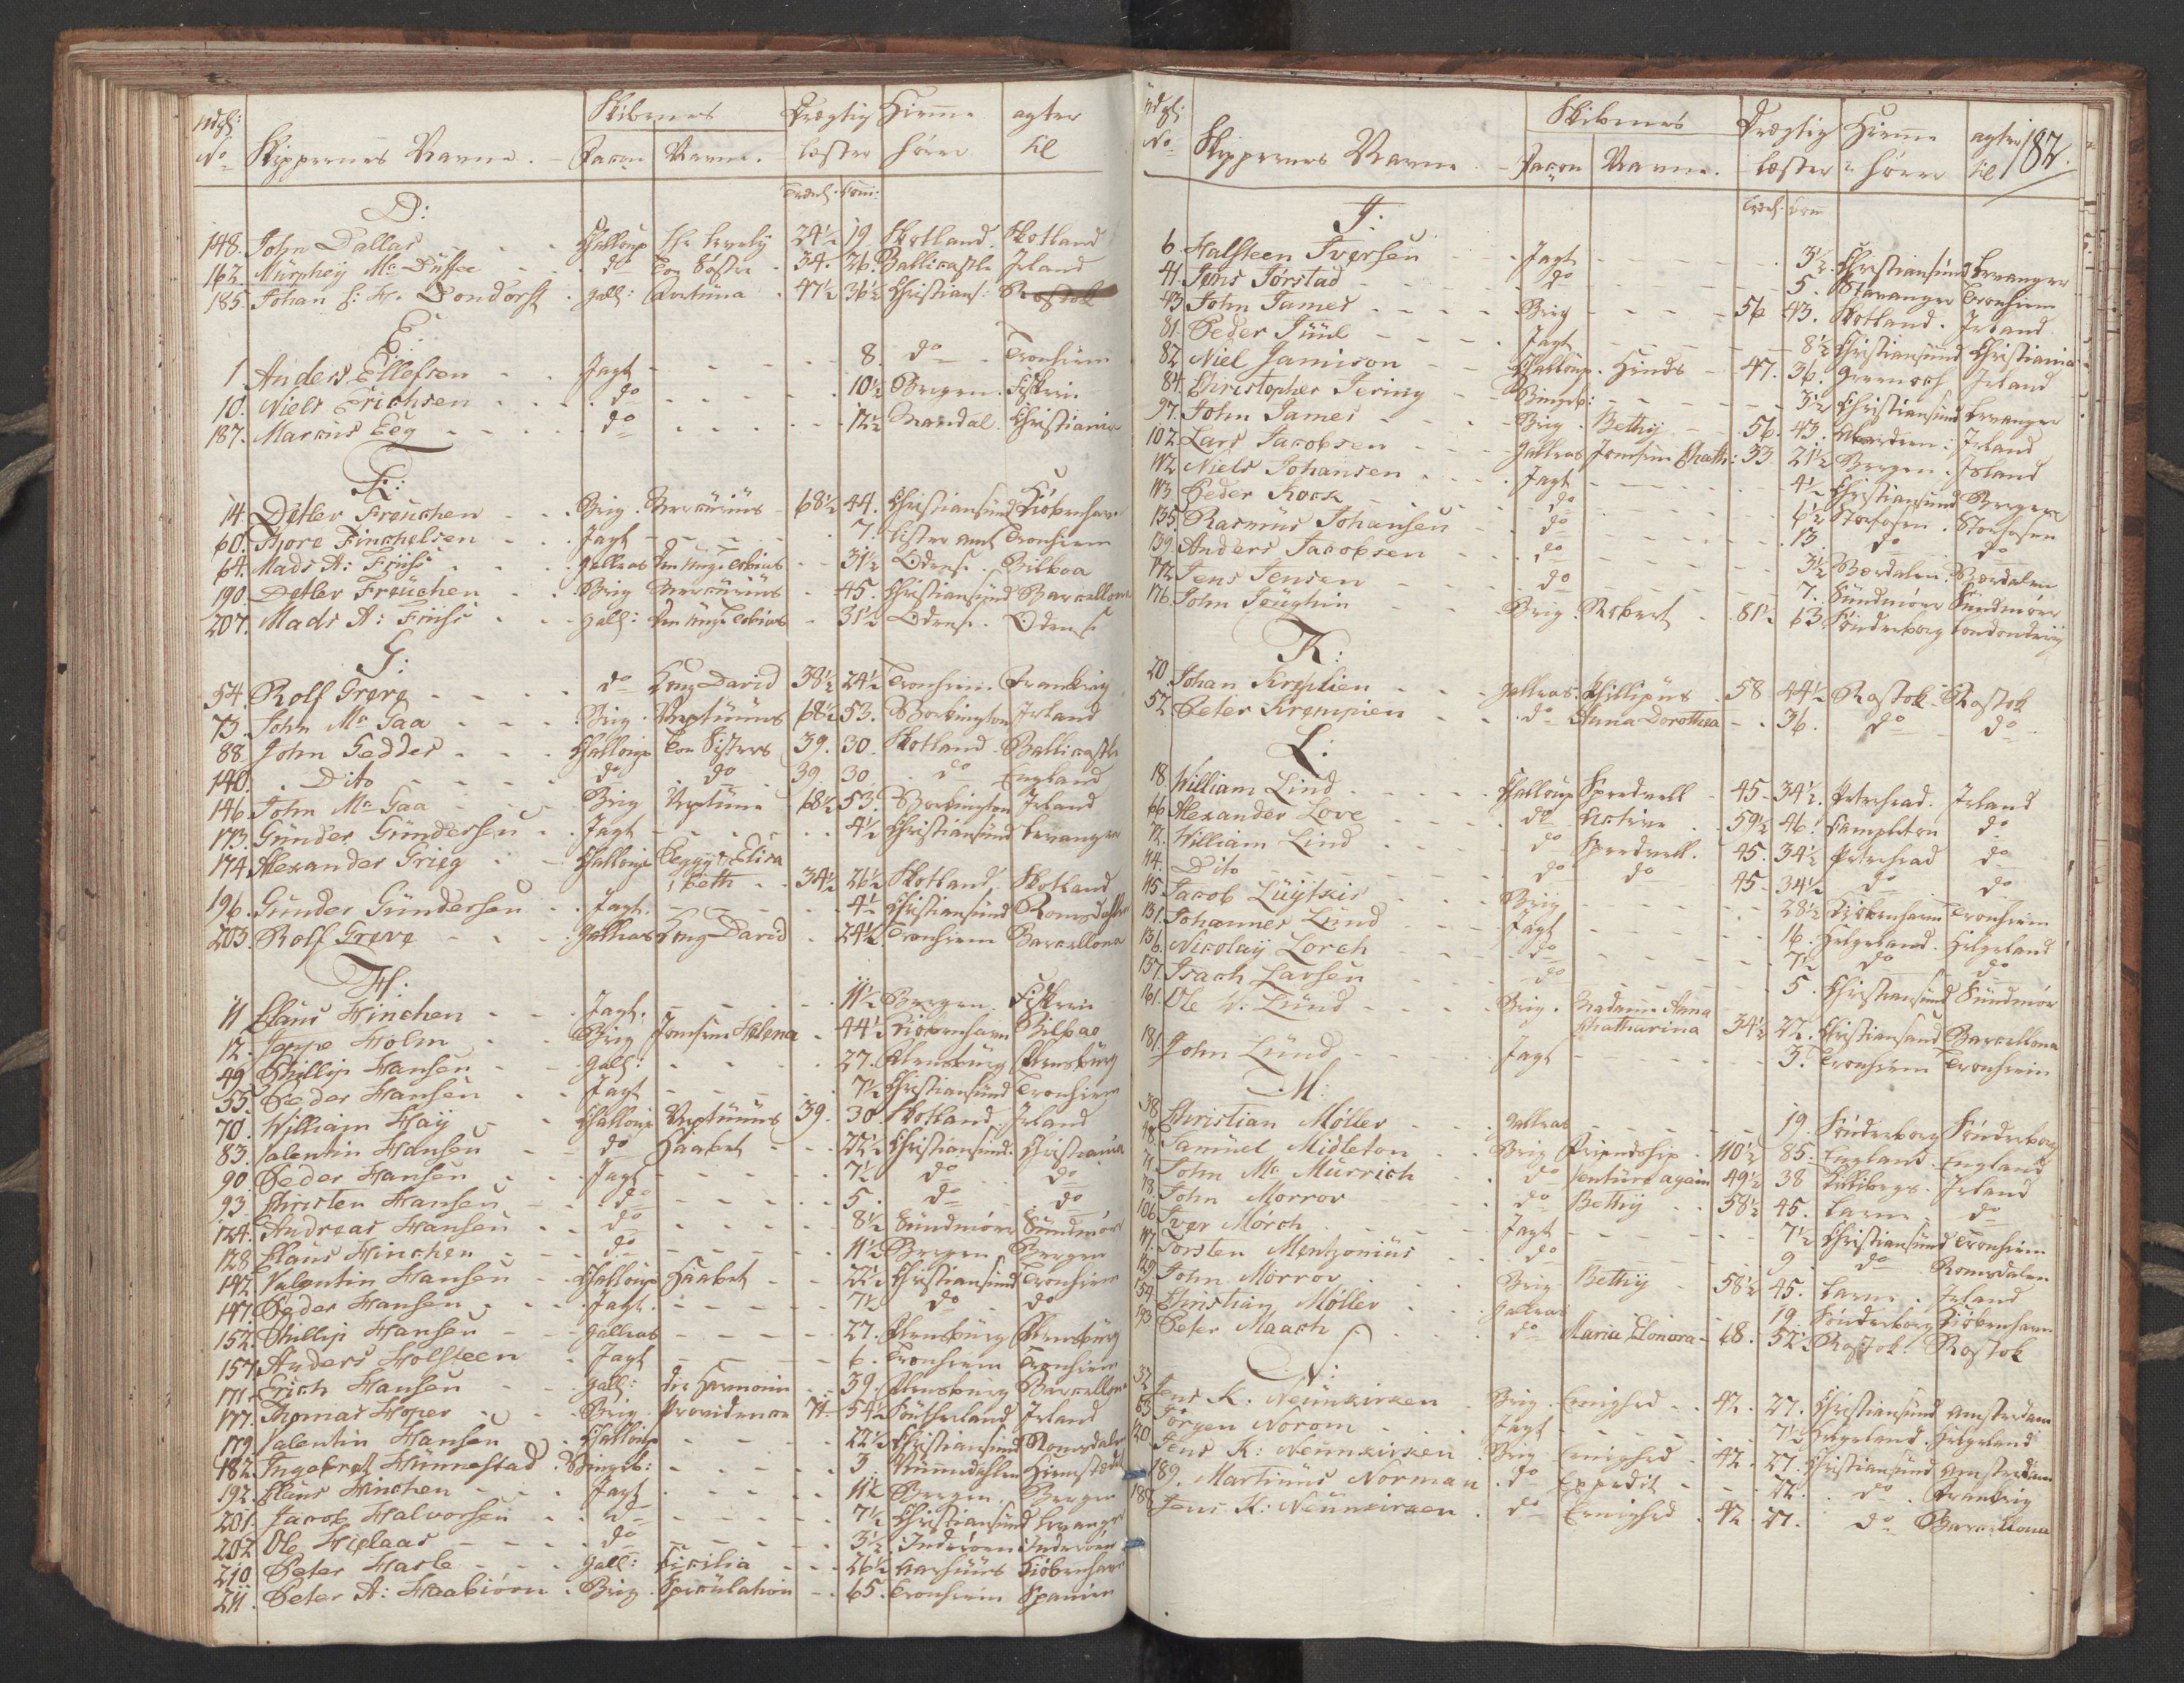 Udgl: No Skippernes Navne. Skibenes Facon Navne. Drægtig læster Hiemme hører agter til
Trælt. Com:
D:
148. John Dallas - - - Challoup The Lovely 24½ 19 Skotland. Skotland
162. Murphey Mc Duffee - - do Two Søstre 34. 26. Ballicastle Irland
185. Johan C: H. Dondorff . Gall: Fortuna 47½ 36½ Christians: Rostok
E:
1 Anders Ellefsen - - Jagt - - - 8. do - Tronhiem
10. Niels Erichsen - - - do - - - 10½ Bergen. Fiskerie
187. Marcus Eeg - - - do - - - 12½ Mandal. Christiania
F:
14. Ditlev Freuchen - - Brig. Mercurius - 68½ 44. Christiansund Kiøbenhavn
60. Thore Finchelsen - - Jagt - - - 7. Lister amt Tronhiem
64. Mads A: Friis - - Galleas Den unge Tobias - 31½ Odense. Bilboa
190. Detlev Freuchen - - Brig Mercurius - 45. Christiansund Barcellona
207. Mads A: Friis - - Gall: Den unge Tobias - 31½ Odense. Odense
G:
54. Rolf Greve - - - do Kong David 38½ 24½ Tronhiem. Frankrig
73. John Mc Gaa - - - Brig. Neptunus 68½ 53. Workington Irland
88. John Geddes - - - Challoup Two Sisters 39. 30. Skotland. Ballicastle
140. . Dito - - - do . do 39. 30. do England
146. John Mc Gaa - - Brig Neptune 68½ 53. Workington Irland
173. Gunder Gundersen - - Jagt - - - 4½ Christiansund Levanger
174. Alexander Grieg - - Challoup Peggy & Elisa
beth - 34½ 26½ Skotland. Skotland
196. Gunder Gundersen - - Jagt. - - - 4½ Christiansund Romsdahlen
203. Rolf Greve - - - Galleas Kong David - 24½ Tronhiem Barcellona
H:
11. Claus Hinchen - - - Jagt. - - - 11½ Bergen. Fiskerie
12. Jeppe Holm - - - Brig Jomfrue Helena - 44½ Kiøbenhavn Bilbao
49. Phillip Hansen - - Gall: - - - 27. Flensburg Flensburg
55. Peder Hansen - - Jagt - - - 7½ Christiansund Tronhiem
70. William Hay - - Challoup Neptunus 39. 30. Skotland. Irland
83. Valentin Hansen - - do Haabet - - 22½ Christiansund. Christiania
90. Peder Hansen - - Jagt - - - 7½ do do
93. Christen Hansen - - do - - - 5. do do
124. Andreas Hansen - - do - - - 8½ Sundmøre Sundmøre
128. Claus Hinchen - - do - - - 11½ Bergen Bergen
142. Valentin Hansen - - Challoup Haabet - - 22½ Christiansund Tronhiem
147. Peder Hansen - - Jagt. - - - 7½ do do
152. Phillip Hansen - - Galleas - - - 27. Flensburg Flensburg
157. Anders Holsteen - Jagt - - - 6. Tronhiem Tronhiem
171. Erich Hansen - - Gall: die Harmonie - 39. Flensburg Barcellona
177. Thomas Hoper - - Brig. Providence 71 54½ Sutherland Irland
179. Valentin Hansen - Challoup - - - 22½ Christiansund Romsdalen
182. Ingebret Hannestad . Bingeb: - - - 3. Nummdahlen Hiemstædet
192. Claus Hinchen - - Jagt - - - 11½ Bergen. Bergen
201. Jacob Halvorsen - - do - - - 7½ Christiansund Levanger
202. Ole Heglaas - - - do - - - 3½ Inderøen Inderøen
210. Peter Harlo - - - Gall: Cicilia - - 26½ Aarhuus Kiøbenhavn
211. Peter A: Haabiørn . Brig Speculation - 65. Tronhiem Spanien
Udgl: No Skippernes Navne. Skibenes Facon Navne. Drægtig læster Hiemme hører agter til 182.
Trælt. Com
I:
6. Halsteen Iversen - - Jagt - - - 3½ Christiansund Levanger
41. Jens Jørstad - - - do - - - 5. Stavanger Tronhiem
43. John James - - - Brig - - - 56 43. Skotland. Irland
81. Peder Juul - - - Jagt - - - 8½ Christiansund Christiania
82. Niel Jamison - - Challoup. Hinds - 47. 36. Greenoch Irland
84. Christopher Jering - - Bingeb: - - - 3½ Christiansund Levanger
97. John James - - - Brig. Bethy - 56. 43. Aberdeen: Irland
102. Lars Jacobsen - - Galleas Jomfrue Chath: 33. 21½ Bergen. Island
112. Niels Johansen - - Jagt - - - 4½ Christiansund Bergen
113. Peder Kock - - - do - - - 6½ Storfosen. Storfosen
135. Rasmus Johansen - - do - - - 13. do do
139. Anders Jacobsen - - do - - - 3½ Værdalen. Værdalen
172. Jens Jensen - - - do - - - 7. Sundmøre Sundmøre
176. John Joughin - - - Brig. Robert - 81½ 63. Sønderborg Londonderry
K:
20. Johan Kreplien - - - Galleas. Phillipus. 58 44½ Rostok. Rostok
57. Peter Krempien - - - do Anna Dorothea - - 36. do - do -
L:
18. William Lind - - - Challoup Speedwell - 45 - 34½. Peterhead. Irland
66. Alexander Love - - do Active - 59½ 46. Campleton do
72. William Lind - - - do Speedwell. 45. 34½ Peterhead do
74. Dito - - - do do 45. 34½ do do
115. Jacob Luytkis - - Brig - - - 28½ Kiøbenhavn Tronhiem
131. Johannes Lund - - Jagt - - - 16. Helgeland. Helgeland
136. Nicolay Lorch - - do - - - 7½ do do
137. Isach Larsen - - do - - - 5. Christiansund Sundmør
161. Ole W: Lund - - - Brig. Madame Anna
Chatharina 34½ 22. Christiansand Barcellona
181. John Lund - - - Jagt - - - 3. Tronhiem Tronhiem
M:
38. Christian Møller - - Galleas - - - 19. Sønderborg Sønderborg
48. Samuel Midleton - - Brig Friendship. 110½ 85. England. England
71. John Mc Murrich - - do Venture again 49½ 38 Killibegs. Irland
78. John Morrov - - do Bethy - 58½ 45. Larne. do
106. Iver Mörch - - - Jagt - - - 7½ Christiansund Tronhiem
117. Torsten Mentzonius - - do - - - 9. do Romsdalen
129. John Morrov - - - Brig Bethy - 58½ 45. Larne. Irland
154. Christian Møller - - Galleas - - - 19. Sønderborg Kiøbenhavn
193. Peter Maach - - - do Maria Elonora - 68. 52½ Rostok. Rostok
N:
37. Jens K. Neunkirken . Brig. Eenighed - 42. 27. Christiansund Amsterdam
63. Jørgen Norom - - - Jagt - - - 7½ Helgeland. Helgeland
120. Jens K: Neunkirken . Brig Eenighed - 42. 27. Christiansund Amsterdam
189. Martinus Norman . do Expedit - - 22. do. Frankrig
188. Jens K: Neunkirken . do Eenighed. 42. 27. do Barcellona